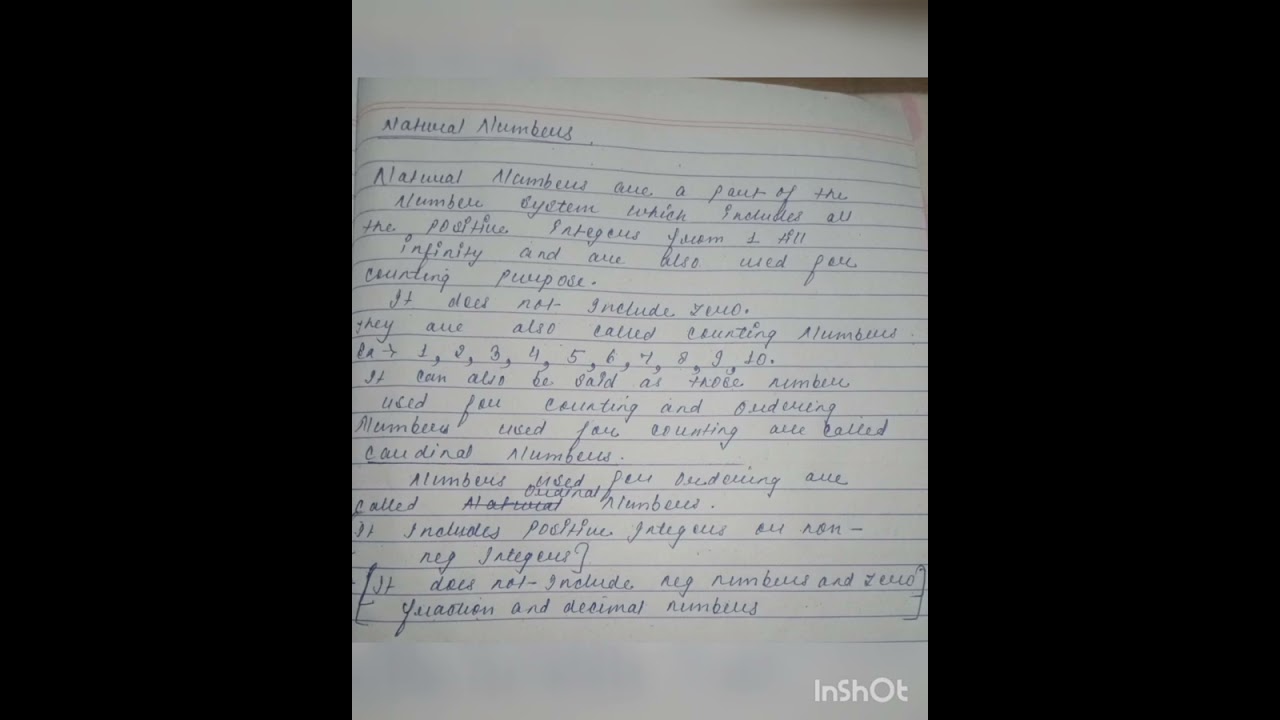 Natural Numbers.
Natural Numbers are a part of the
Number System which includes all
the positive Integers from 1 till
infinity and are also used for
counting purpose.
It does not Include zero.
they are also called counting Numbers.
Ex → 1, 2, 3, 4, 5, 6, 7, 8, 9, 10.
It can also be said as those number
used for counting and ordering
Numbers used for counting are called
Cardinal Numbers.
Numbers used for ordering are
called Natural Ordinal Numbers.
It includes positive Integers or non-
neg Integers]
[It does not-Include neg numbers and zero]
fraction and decimal numbers
InShOt